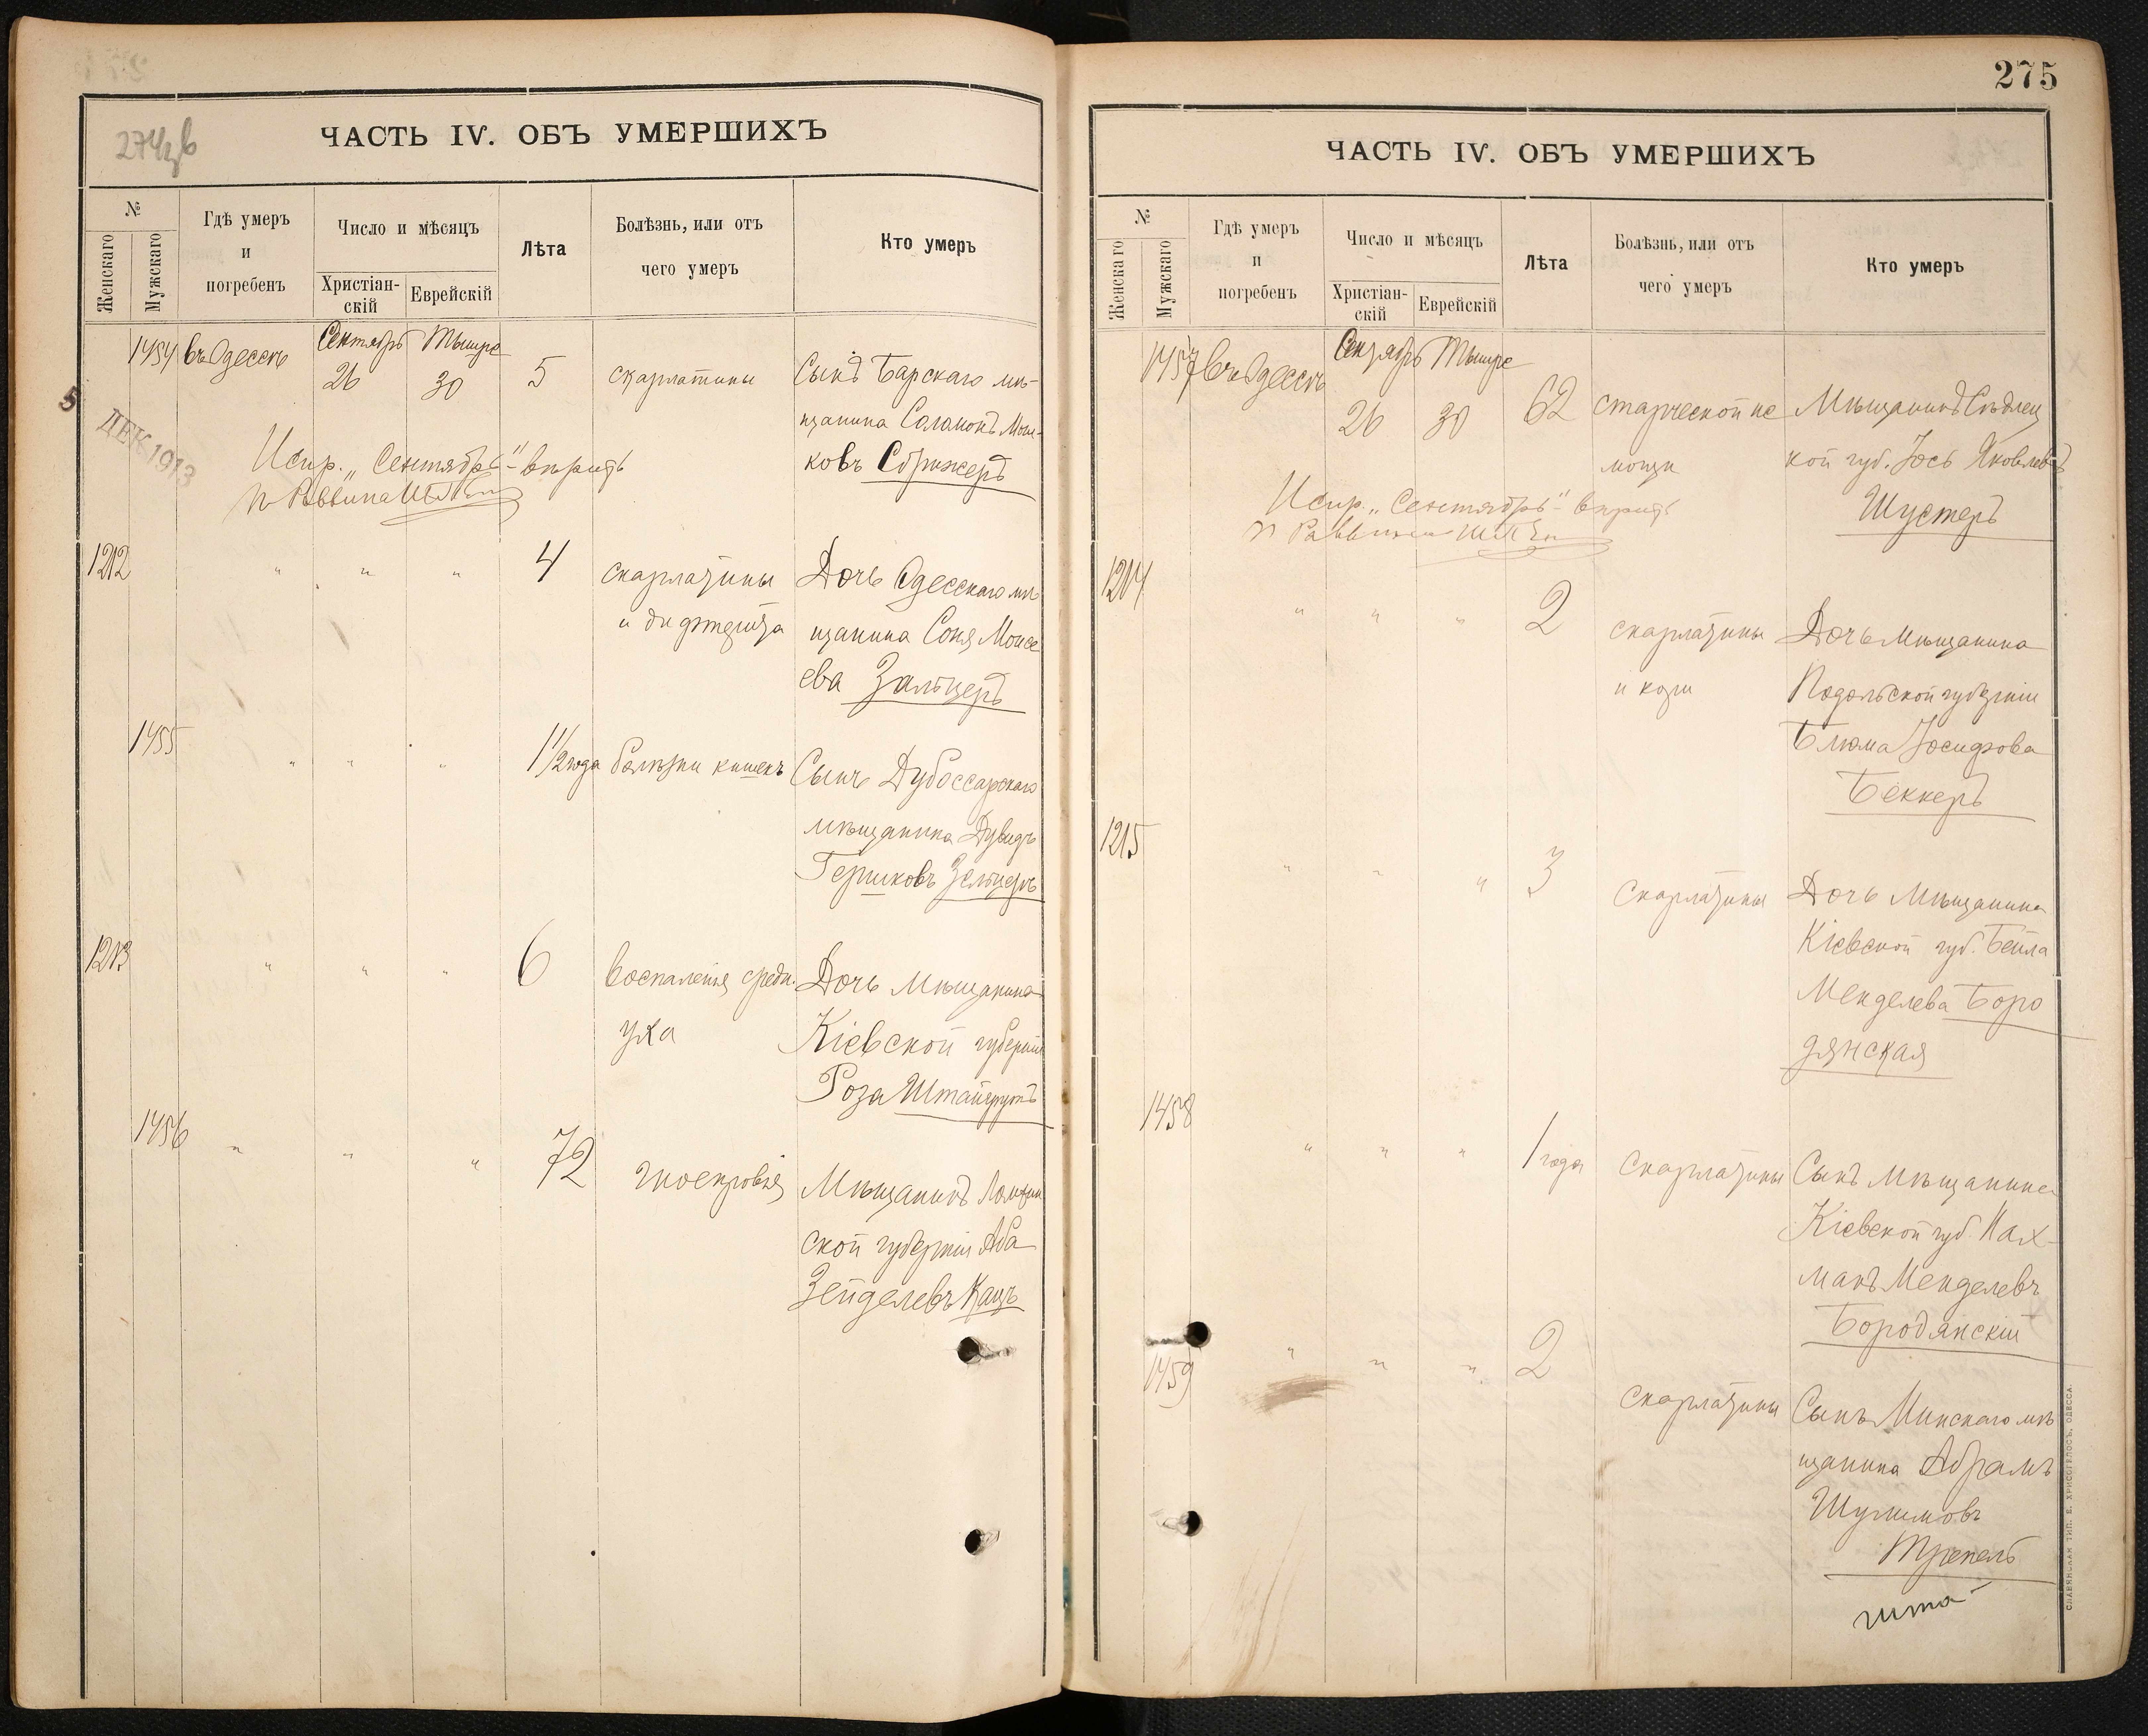 274 об
ЧАСТЬ IV. ОБЪ УМЕРШИХЪ
№
Женскаго
Мужскаго
Гдѣ умеръ
и
погребенъ
Число и мѣсяцъ
Христіан-
скій
Еврейскій
Лѣта
Болѣзнь, или отъ
чего умеръ
Кто умеръ
1454 въ Одессѣ Сентябрь 26 Тышре 30 5 скарлатины Сынъ Барскаго мѣ-
щанина Соломонъ Мош-
ковъ
5
ДЕК 1913
Испр. „Сентябрь" - вѣрить
п Раввина
1212 " " " 4 скарлатины Дочь Одесскаго мѣ
и дифтерита щанина Соня Моисе
ева Зальцеръ
1455 " " " 1 1/2 года болѣзни кишекъ Сынъ Дубоссарскаго
мѣщанина Дувидъ
Гершковъ Зельцеръ
1213 " " " 6 воспаленія средн. Дочь Мѣщанина
уха Кіевской губерніи
Роза
1456 " " " 72 гноекровія Мѣщанинъ Ломжин
ской губерніи Аба
Зейделевъ Кацъ
275
ЧАСТЬ IV. ОБЪ УМЕРШИХЪ
№
Женскаго
Мужскаго
Гдѣ умеръ
и
погребенъ
Число и мѣсяцъ
Христіан-
скій
Еврейскій
Лѣта
Болѣзнь, или отъ
чего умеръ
Кто умеръ
1457 въ Одессѣ Сентябрь 26 Тышре 30 62 старческой не Мѣщанинъ Сѣдлец
мощи кой губ. Іось Яковлевъ
Шустеръ
Испр. „Сентябрь" - вѣрить
п Раввина
1214 " " " 2 скарлатины Дочь Мѣщанина
и кори Подольской губерніи
Блюма Іосифова
Беккеръ
1215 " " " 3 Скарлатины Дочь Мѣщанина
Кіевской губ. Бейла
Менделева Боро
дянская
1458 " " " 1 года Скарлатины Сынъ Мѣщанина
Кіевской губ. Нах-
манъ Менделевъ
Бородянскій
1459 " " " 2 Скарлатины Сынъ Минскаго мѣ
щанина Абрамъ
Шулимовъ
СЛАВЯНСКАЯ ТИП. Е. ХРИСОГЕЛОСЪ. ОДЕССА.